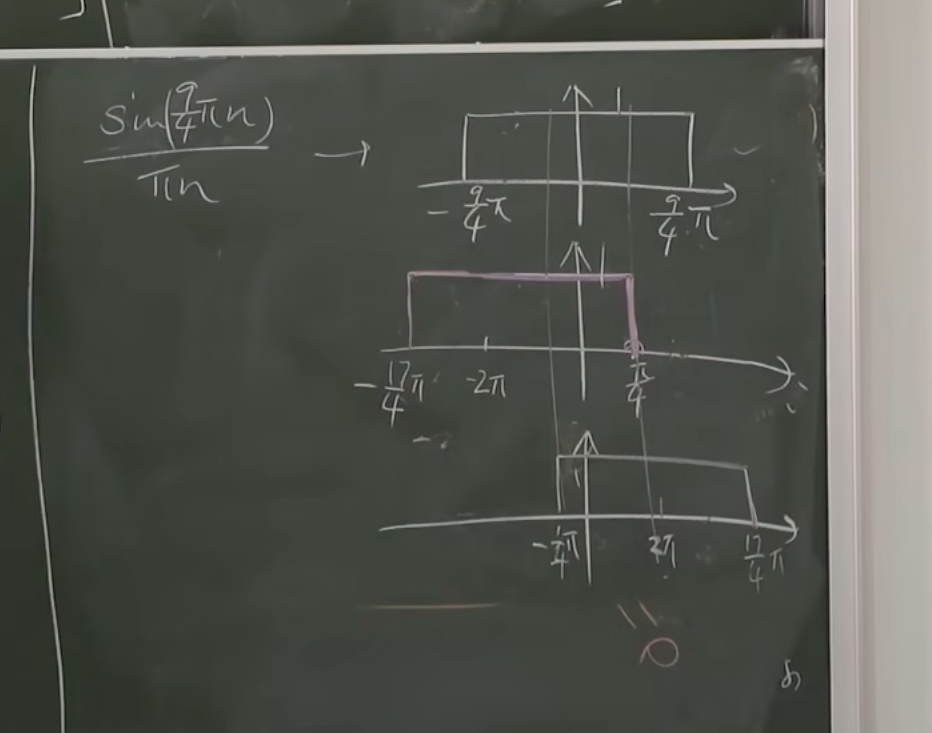 sin(9/4 πn)
πn
→
1
-9/4 π
9/4 π
1
-17/4 π
-2π
π/4
1
-1/4 π
2π
17/4 π